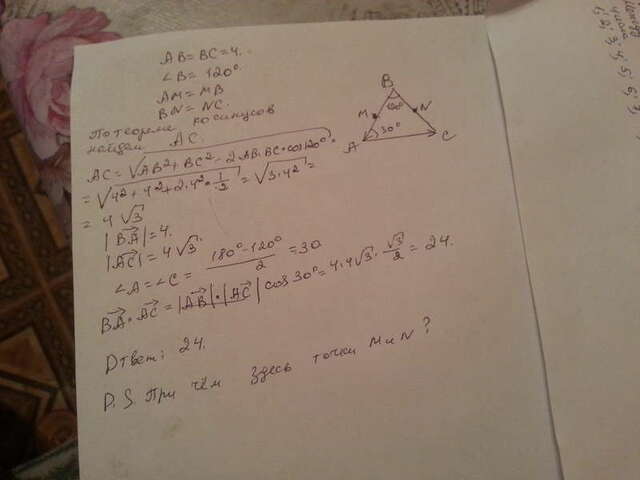 AB = BC = 4.
∠B = 120°.
AM = MB
BN = NC.
По теореме косинусов
найдем AC.
AC = √(AB² + BC² - 2AB·BC·cos120°) =
= √(4² + 4² + 2·4²·1/2) = √(3·4²) =
= 4√3
|BA| = 4.
|AC| = 4√3.
∠A = ∠C = (180° - 120°)/2 = 30
BA · AC = |AB|·|AC| cos 30° = 4·4√3 · √3/2 = 24.
Ответ: 24.
P.S При чём здесь точки M и N?
B
M
120°
N
A
30°
C